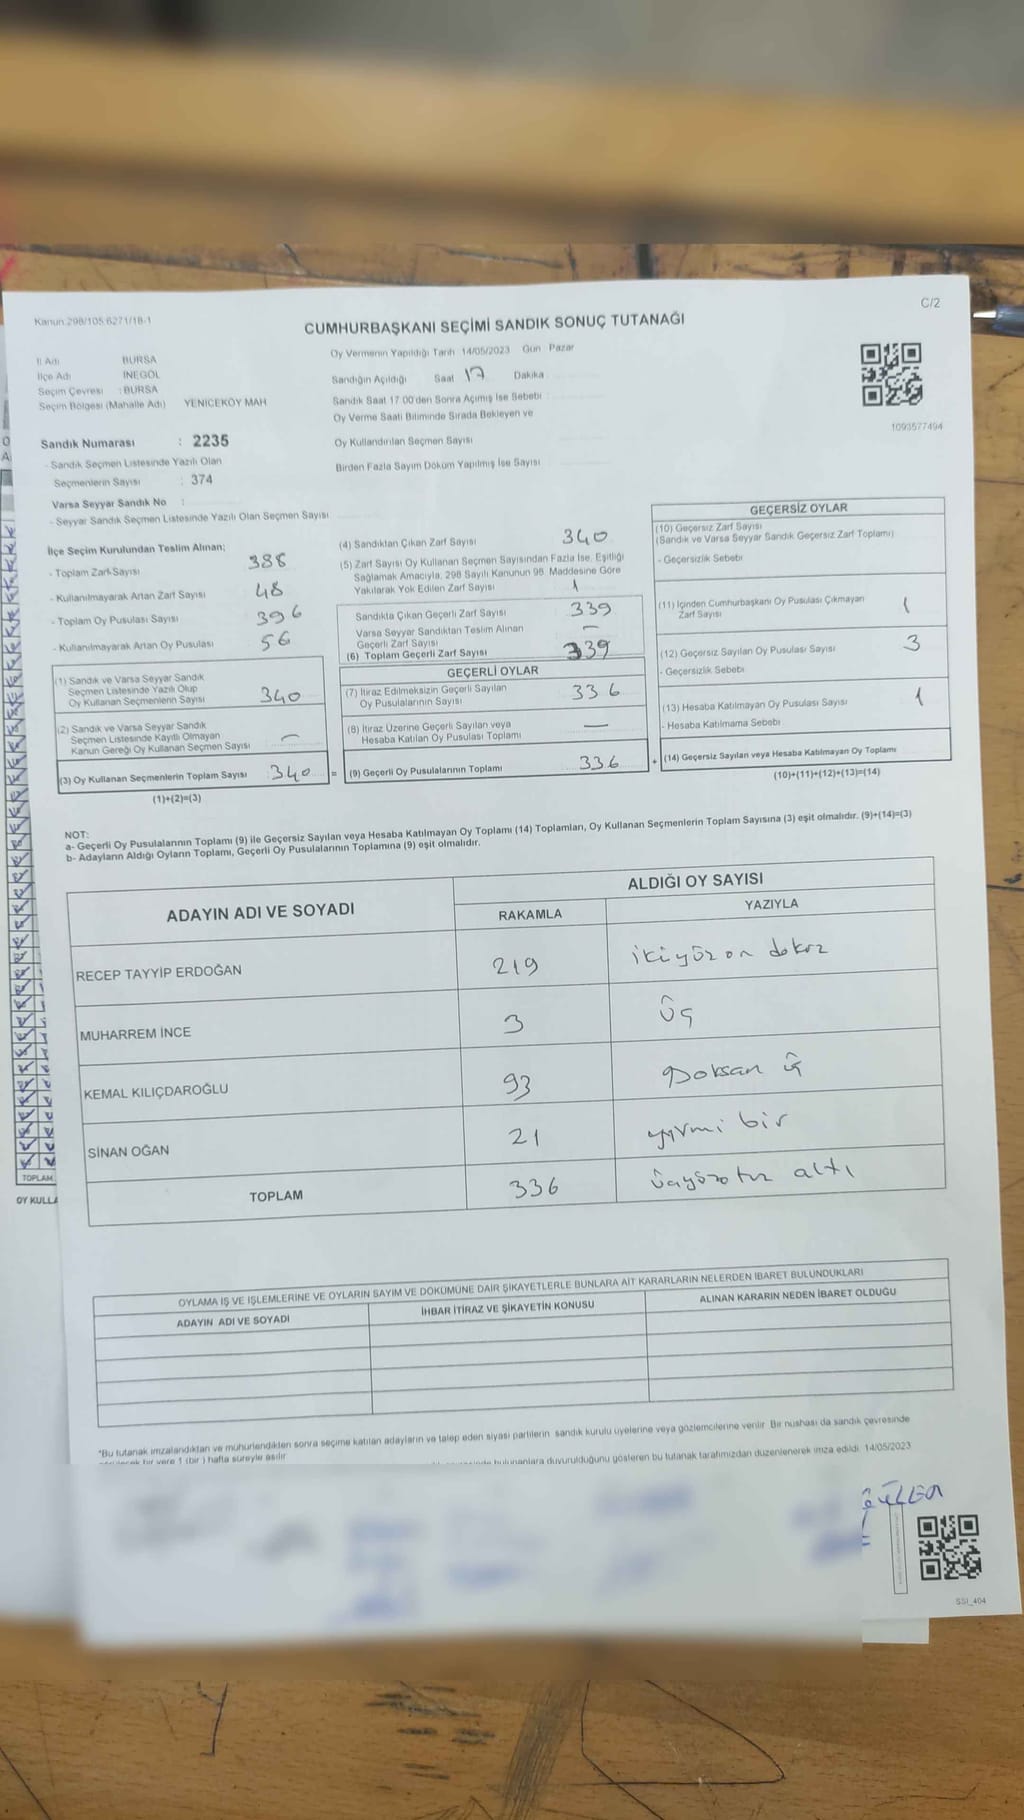 Kanun 298/105 6271/18-1
C/2
CUMHURBAŞKANI SEÇİMİ SANDIK SONUÇ TUTANAĞI
İl Adı BURSA
İlçe Adı İNEGÖL
Seçim Çevresi : BURSA
Seçim Bölgesi (Mahalle Adı) YENİCEKÖY MAH
Oy Vermenin Yapıldığı Tarih 14/05/2023 Gün Pazar
Sandığın Açıldığı Saat 17 Dakika
Sandık Saat 17 00'den Sonra Açımış İse Sebebi :
Oy Verme Saati Bitiminde Sırada Bekleyen ve
Oy Kullandırılan Seçmen Sayısı
Birden Fazla Sayım Döküm Yapılmış İse Sayısı
1093577494
Sandık Numarası : 2235
- Sandık Seçmen Listesinde Yazılı Olan
Seçmenlerin Sayısı : 374
Varsa Seyyar Sandık No :
- Seyyar Sandık Seçmen Listesinde Yazılı Olan Seçmen Sayısı
İlçe Seçim Kurulundan Teslim Alınan;
- Toplam Zarf Sayısı 388
- Kullanılmayarak Artan Zarf Sayısı 48
- Toplam Oy Pusulası Sayısı 396
- Kullanılmayarak Artan Oy Pusulası 56
(1) Sandık ve Varsa Seyyar Sandık
Seçmen Listesinde Yazılı Olup
Oy Kullanan Seçmenlerin Sayısı 340
(2) Sandık ve Varsa Seyyar Sandık
Seçmen Listesinde Kayıtlı Olmayan
Kanun Gereği Oy Kullanan Seçmen Sayısı —
(3) Oy Kullanan Seçmenlerin Toplam Sayısı : 340
(1)+(2)=(3)
(4) Sandıktan Çıkan Zarf Sayısı 340
(5) Zarf Sayısı Oy Kullanan Seçmen Sayısından Fazla İse, Eşitliği
Sağlamak Amacıyla, 298 Sayılı Kanunun 98. Maddesine Göre
Yakılarak Yok Edilen Zarf Sayısı 1
Sandıkta Çıkan Geçerli Zarf Sayısı 339
Varsa Seyyar Sandıktan Teslim Alınan
Geçerli Zarf Sayısı —
(6) Toplam Geçerli Zarf Sayısı 339
GEÇERLİ OYLAR
(7) İtiraz Edilmeksizin Geçerli Sayılan
Oy Pusulalarının Sayısı 336
(8) İtiraz Üzerine Geçerli Sayılan veya
Hesaba Katılan Oy Pusulası Toplamı —
= (9) Geçerli Oy Pusulalarının Toplamı 336 +
GEÇERSİZ OYLAR
(10) Geçersiz Zarf Sayısı
(Sandık ve Varsa Seyyar Sandık Geçersiz Zarf Toplamı)
- Geçersizlik Sebebi
(11) İçinden Cumhurbaşkanı Oy Pusulası Çıkmayan
Zarf Sayısı 1
(12) Geçersiz Sayılan Oy Pusulası Sayısı 3
- Geçersizlik Sebebi
(13) Hesaba Katılmayan Oy Pusulası Sayısı 1
- Hesaba Katılmama Sebebi :
(14) Geçersiz Sayılan veya Hesaba Katılmayan Oy Toplamı
(10)+(11)+(12)+(13)=(14)
NOT:
a- Geçerli Oy Pusulalarının Toplamı (9) ile Geçersiz Sayılan veya Hesaba Katılmayan Oy Toplamı (14) Toplamları, Oy Kullanan Seçmenlerin Toplam Sayısına (3) eşit olmalıdır. (9)+(14)=(3)
b- Adayların Aldığı Oyların Toplamı, Geçerli Oy Pusulalarının Toplamına (9) eşit olmalıdır.
ADAYIN ADI VE SOYADI
ALDIĞI OY SAYISI
RAKAMLA YAZIYLA
RECEP TAYYİP ERDOĞAN 219 ikiyüzon dokuz
MUHARREM İNCE 3 Üç
KEMAL KILIÇDAROĞLU 93 Doksan üç
SİNAN OĞAN 21 yirmi bir
TOPLAM 336 üçyüzotuz altı
OYLAMA İŞ VE İŞLEMLERİNE VE OYLARIN SAYIM VE DÖKÜMÜNE DAİR ŞİKAYETLERLE BUNLARA AİT KARARLARIN NELERDEN İBARET BULUNDUKLARI
ADAYIN ADI VE SOYADI İHBAR İTİRAZ VE ŞİKAYETİN KONUSU ALINAN KARARIN NEDEN İBARET OLDUĞU
*Bu tutanak imzalandıktan ve mühürlendikten sonra seçime katılan adayların ve talep eden siyasi partilerin sandık kurulu üyelerine veya gözlemcilerine verilir Bir nüshası da sandık çevresinde
bir yere 1 (bir) hafta süreyle asılır
bulunanlara duyurulduğunu gösteren bu tutanak tarafımızdan düzenlenerek imza edildi 14/05/2023
TOPLAM
OY KULLA
SSI_404